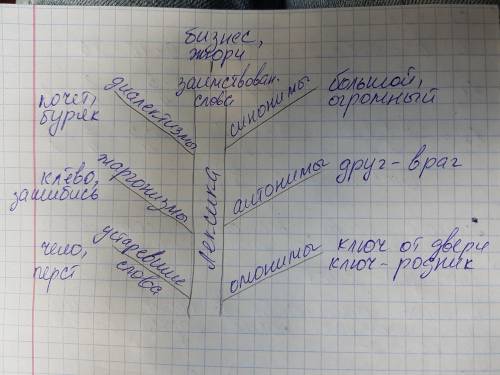 бизнес,
жюри
заимствован.
слова
диалектизмы
почет,
буряк
синонимы
большой,
огромный
жаргонизмы
клёво,
зашибись
антонимы
друг - враг
устаревшие
слова
чело,
перст
омонимы
ключ от двери
ключ - родник
лексика